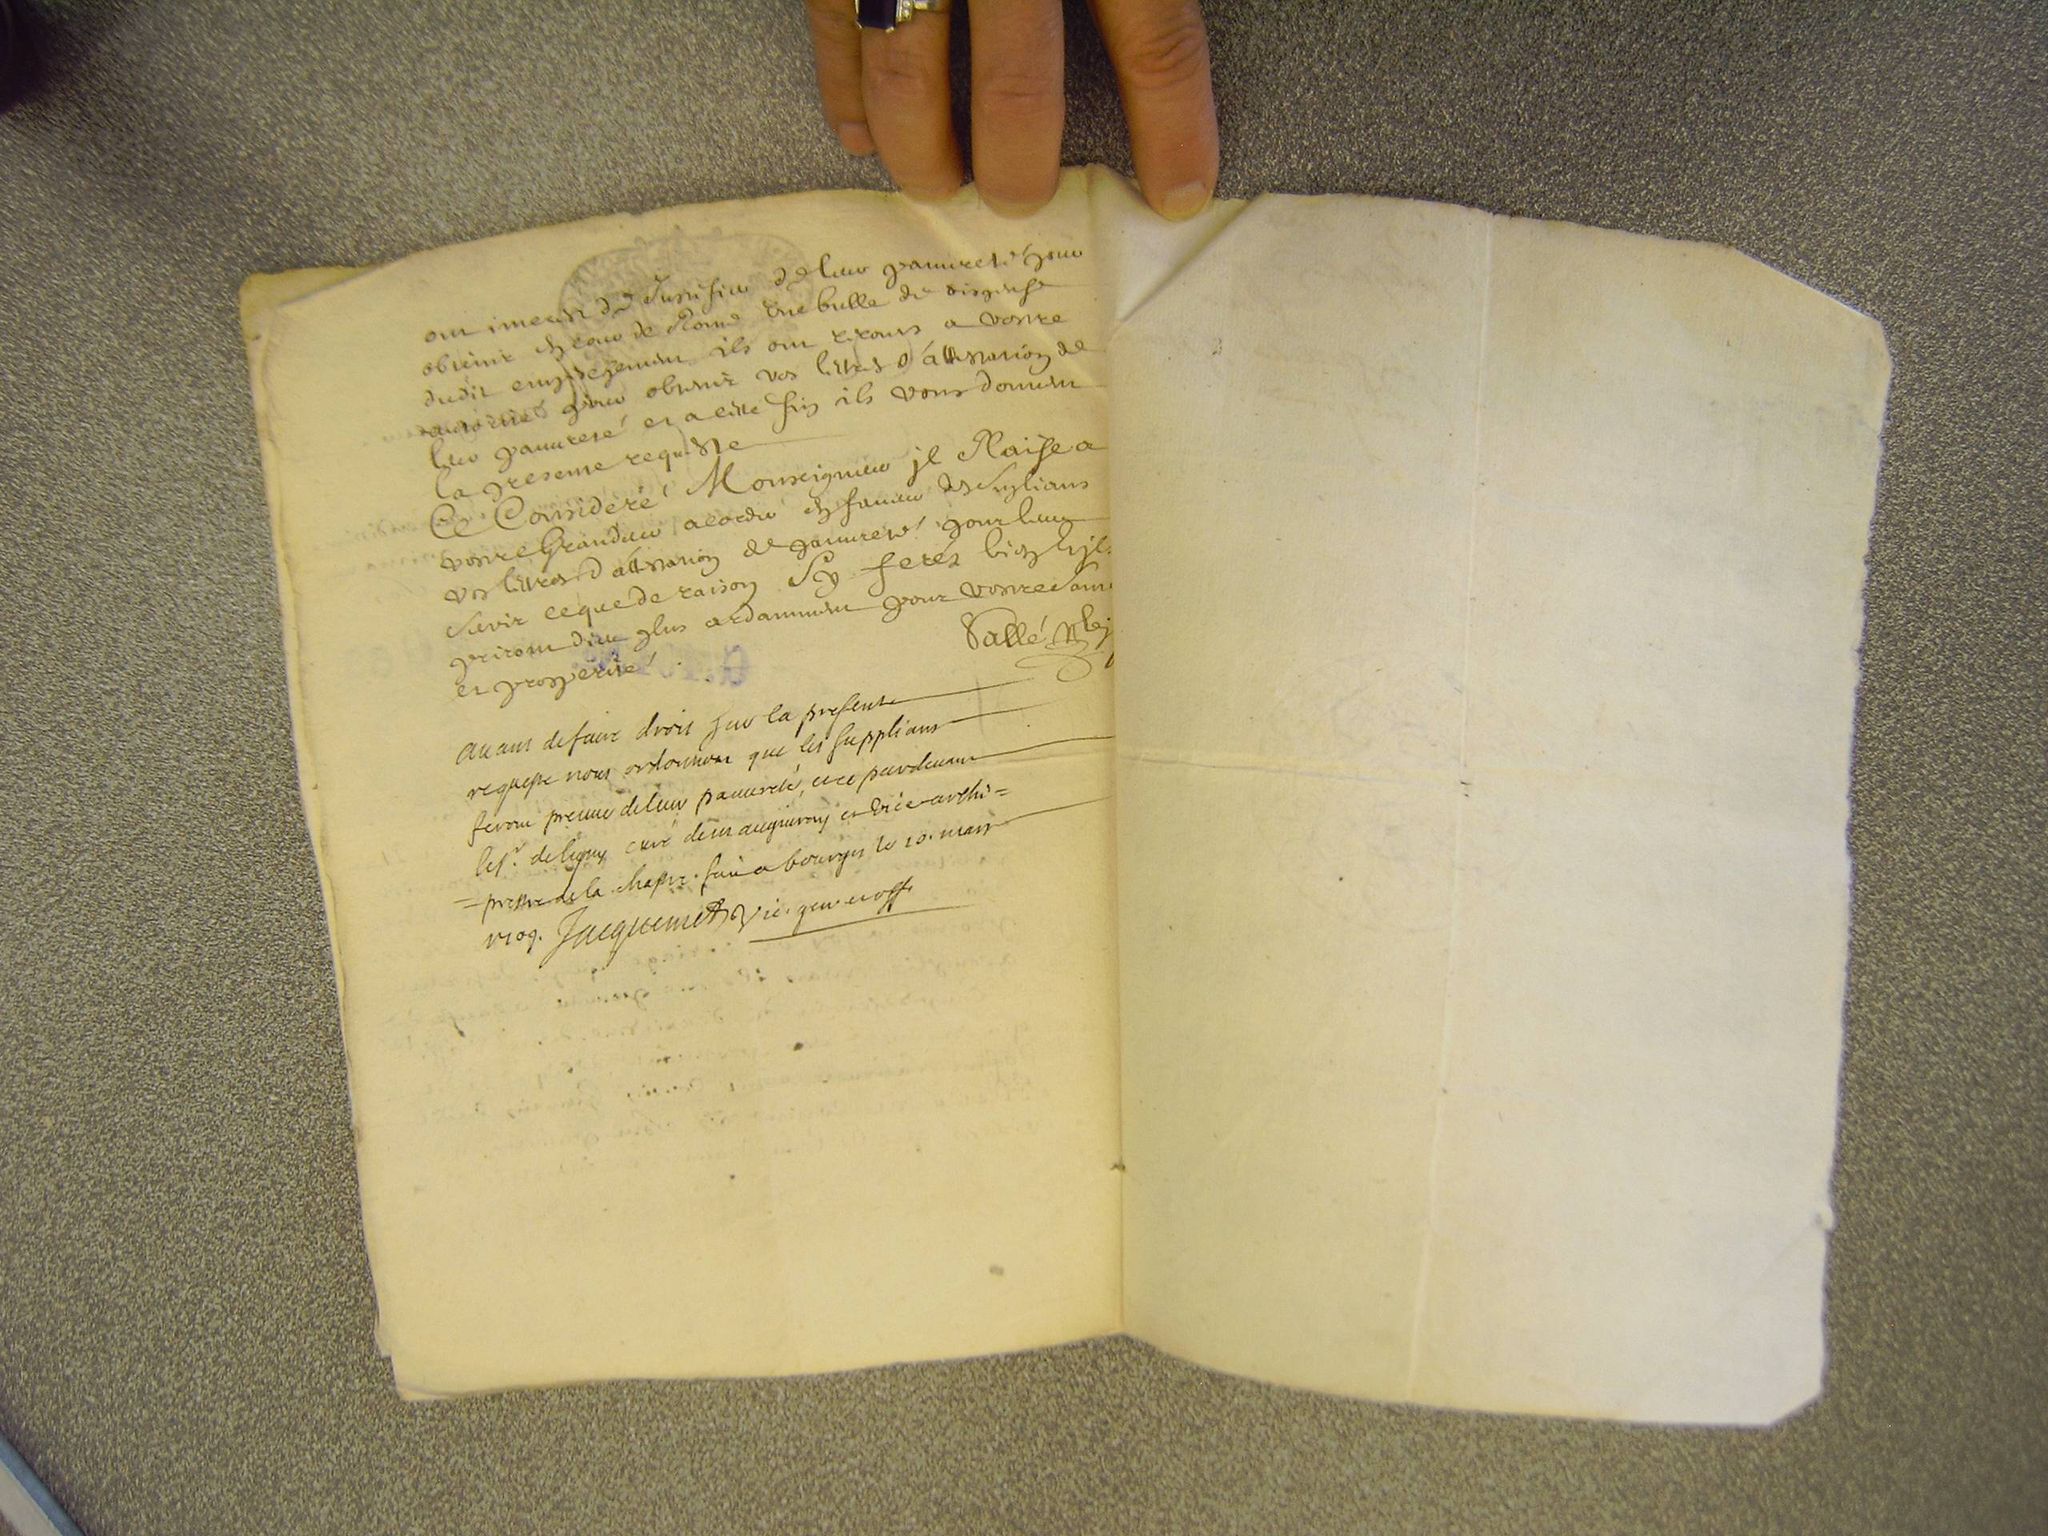 ont interest de Justifier de leur pauvreté pour
obtenir en cour de Rome une bulle de dispense
dudit empeschement ils ont recours a vostre
authorité pour obtenir vos lettres d'attestation de
leur pauvreté et a cette fin ils vous donnent
la presente requeste
Ce Consideré Monseigneur il Plaise a
vostre Grandeur acorder en faveur des Suplians
vos lettres d'attestation de pauvreté pour leur
servir ce que de raison Sy ferés bien et ils
priront dieu plus ardamment pour vostre Santé
et prosperité
Vallé
Avant de faire droit sur la presente
requeste nous ordonnons que les supplians
feront preuve de leur pauvreté, et ce pardevant
le Sr. deligny curé de et vice-archi=
=prestre de la chastre. fait a bourges le 10. mars
1709. Jacquemet vic. gen. et off.